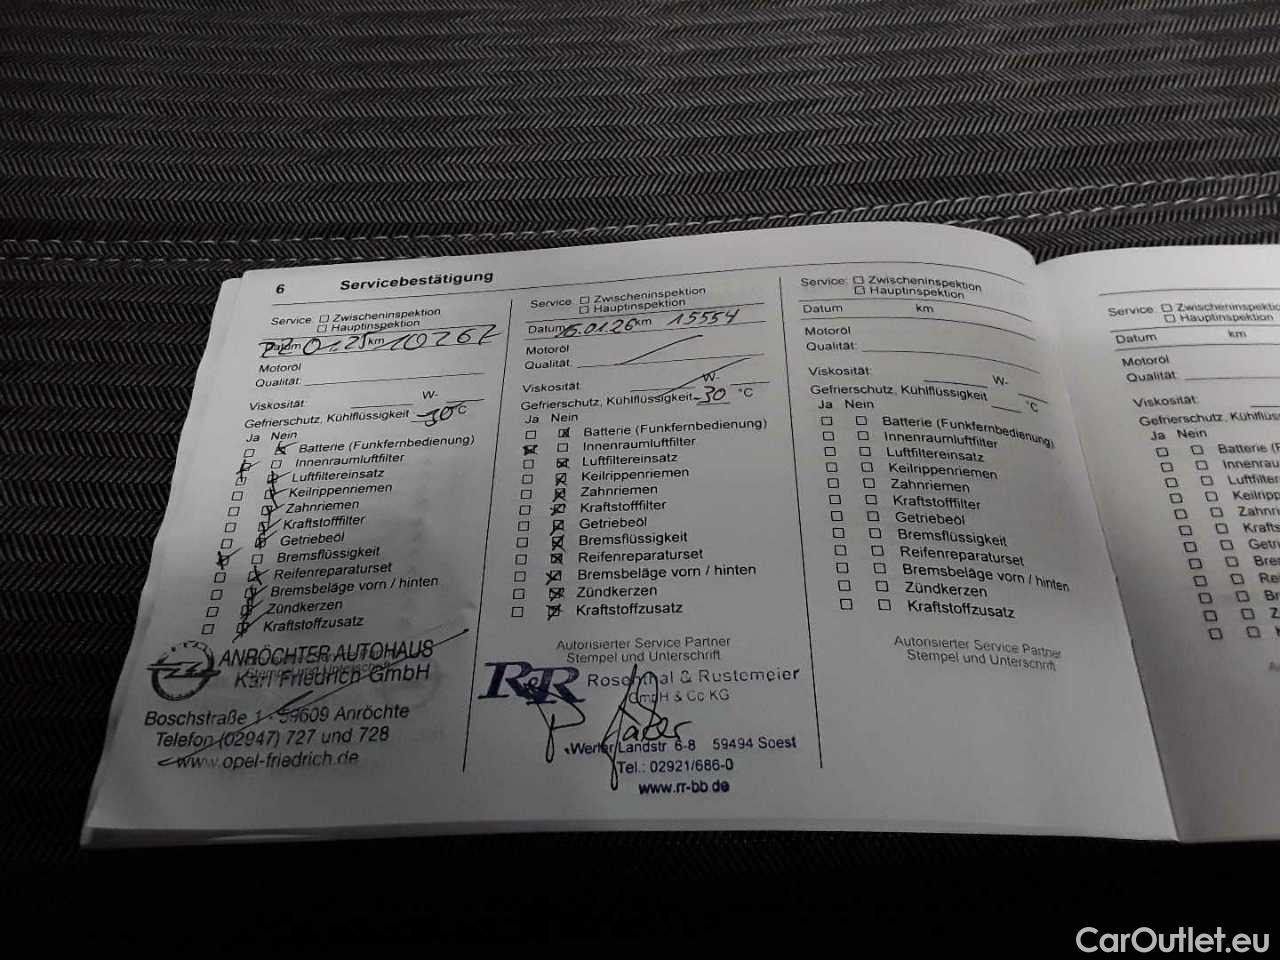 6 Servicebestätigung
Service: ☐ Zwischeninspektion
☐ Hauptinspektion
Datum 22.01.25 km 10267
Motoröl
Qualität:
Viskosität: W-
Gefrierschutz, Kühlflüssigkeit -30 °C
Ja Nein
Batterie (Funkfernbedienung)
Innenraumluftfilter
Luftfiltereinsatz
Keilrippenriemen
Zahnriemen
Kraftstofffilter
Getriebeöl
Bremsflüssigkeit
Reifenreparaturset
Bremsbeläge vorn / hinten
Zündkerzen
Kraftstoffzusatz
ANRÖCHTER AUTOHAUS
Karl Friedrich GmbH
Boschstraße 1 - 59609 Anröchte
Telefon (02947) 727 und 728
www.opel-friedrich.de
Service: ☐ Zwischeninspektion
☐ Hauptinspektion
Datum 15.01.26 km 15554
Motoröl
Qualität:
Viskosität: W-
Gefrierschutz, Kühlflüssigkeit -30 °C
Ja Nein
Batterie (Funkfernbedienung)
Innenraumluftfilter
Luftfiltereinsatz
Keilrippenriemen
Zahnriemen
Kraftstofffilter
Getriebeöl
Bremsflüssigkeit
Reifenreparaturset
Bremsbeläge vorn / hinten
Zündkerzen
Kraftstoffzusatz
Autorisierter Service Partner
Stempel und Unterschrift
R&R Rosenthal & Rustemeier
GmbH & Co KG
Werler Landstr. 6-8 59494 Soest
Tel.: 02921/686-0
www.rr-bb de
Service: ☐ Zwischeninspektion
☐ Hauptinspektion
Datum km
Motoröl
Qualität:
Viskosität: W-
Gefrierschutz, Kühlflüssigkeit °C
Ja Nein
Batterie (Funkfernbedienung)
Innenraumluftfilter
Luftfiltereinsatz
Keilrippenriemen
Zahnriemen
Kraftstofffilter
Getriebeöl
Bremsflüssigkeit
Reifenreparaturset
Bremsbeläge vorn / hinten
Zündkerzen
Kraftstoffzusatz
Autorisierter Service Partner
Stempel und Unterschrift
Service: ☐ Zwischeninspektio
☐ Hauptinspektion
Datum km
Motoröl
Qualität:
Viskosität:
Gefrierschutz, Kühlflüs
Ja Nein
Batterie (F
Innenrau
Luftfilter
Keilripp
Zahnri
Krafts
Getri
Bre
Re
B
Z
CarOutlet.eu